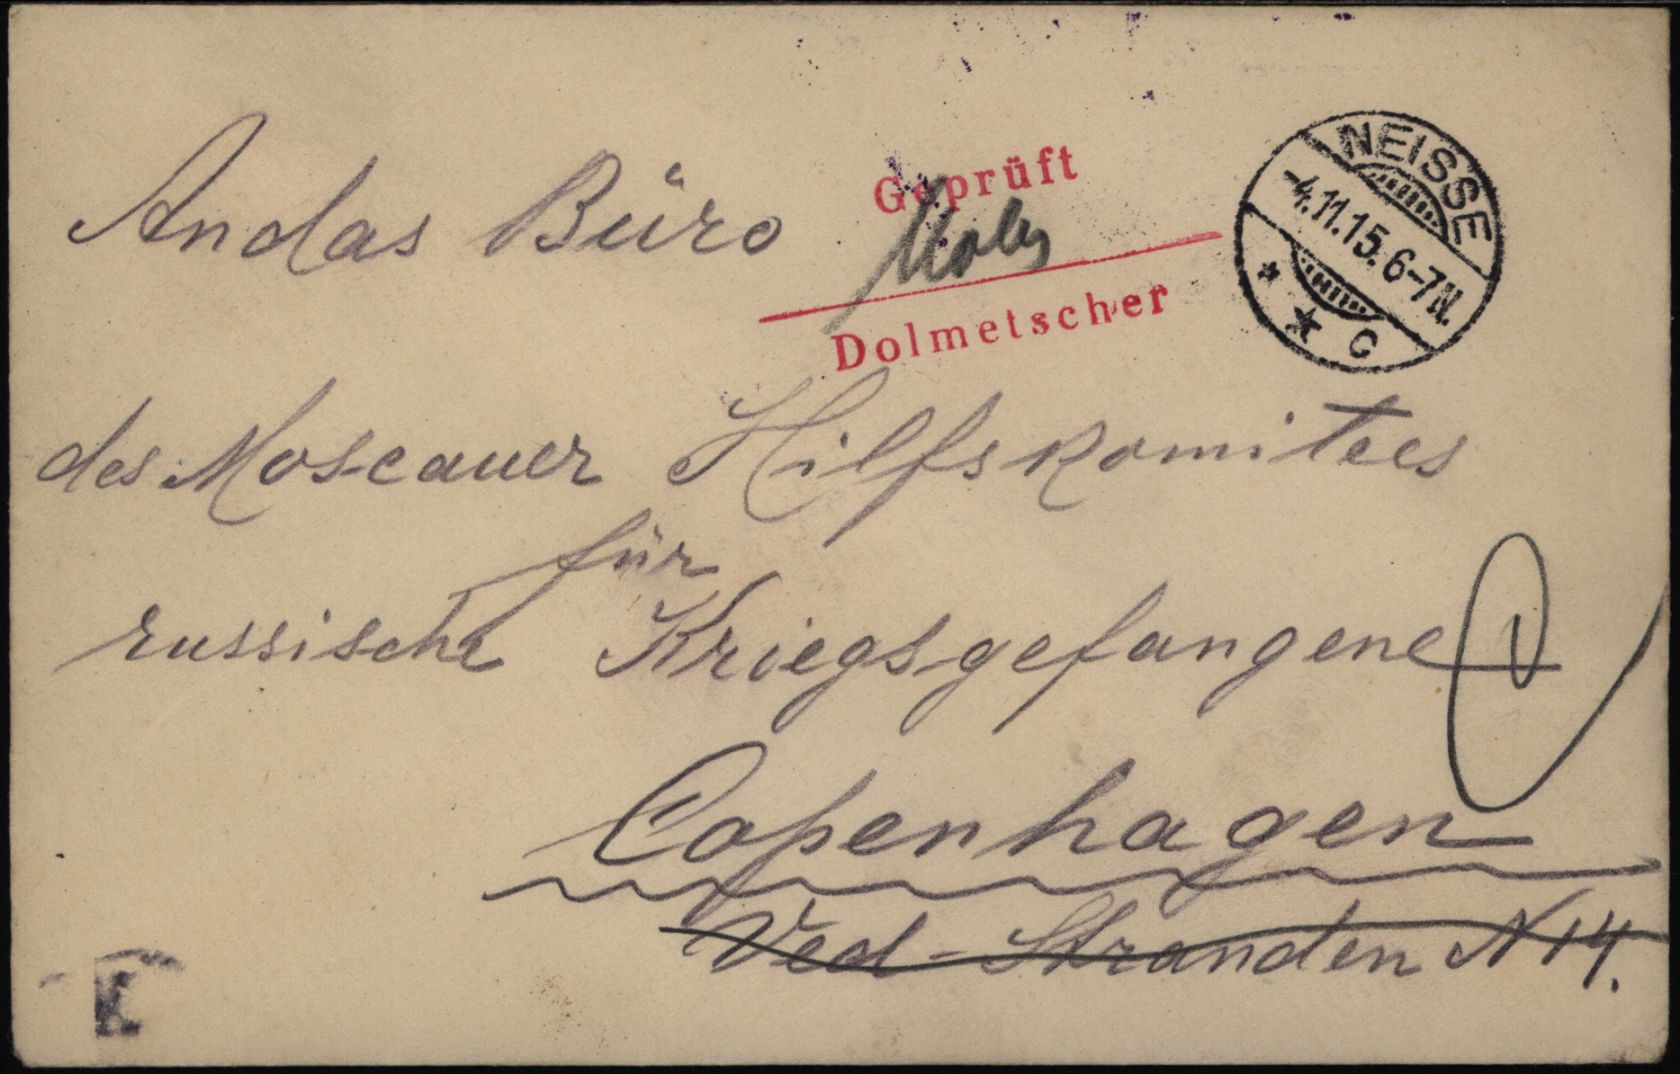 An das Büro
Geprüft
Dolmetscher
NEISSE
-4.11.15. 6-7N.
* * c
des Moscauer Hilfskomitees
für
russische Kriegsgefangene
Copenhagen
Ved-Stranden N 14.